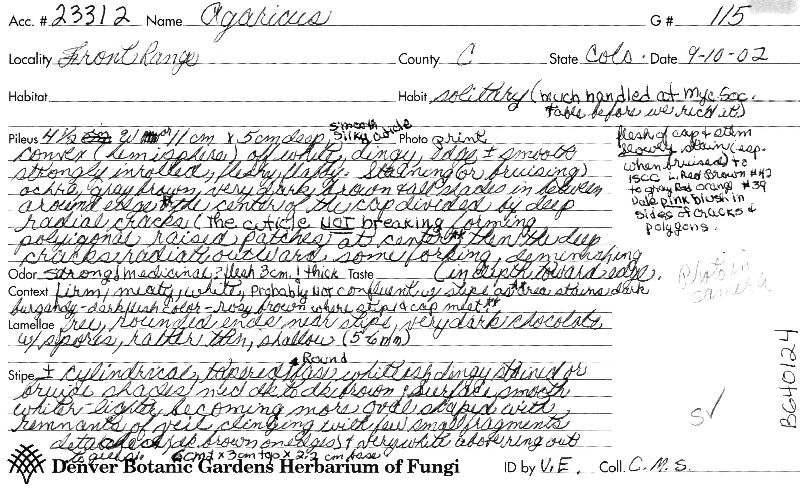 Acc. # 23312 Name Agaricus G# 115
Locality Front Range County C State Colo. Date 9-10-02
Habitat Habit solittery (much handled at Myc. Soc.
table before we rec'd it)
Pileus 4 1/2 W 11 cm x 5 cm deep smooth silky cuticle Photo print
convex (hemisphere) off white, dingy, edge ± smooth
strongly inrolled, fleshy, flabby. Staining (or bruising)
ochre, gray brown, very dark brown & all shades in between
around edge. The center of the cap divided by deep
radial cracks (the cuticle NOT breaking) forming
polyigonal raised patches at center ** then the deep
cracks radiate outward some forking, deminishing
Odor strong! medicinal? flesh 3cm.! thick Taste (in depth toward edge.
Context firm, meaty, white, Probably NOT confluent w/ stipe as area stains dark
burgandy-dark flesh color - rosy brown where stipe & cap meet**
Lamellae free, rounded ends near stipe, very dark chocolate
w/ spores, rather thin, shallow (5-6mm)
Round
Stipe ± cylindrical, tapered base whiteish dingy stained or
bruise shades med dk to dk brown, surface smooth
white-lighty becoming more oval shaped with
remnants of veil clinging with few small fragments
detached (dk brown on edges) & very white above ring out
to gills. 6cm x 3cm top x 2.2 cm base
flesh of cap & stem
slowly stain (esp.
when bruised) to
ISCC - Red Brown #42
to gray Red orange #39
Pale pink blush in
sides of cracks &
polygons.
Photo in
camera
S✓
BG40124
Denver Botanic Gardens Herbarium of Fungi ID by V.E. Coll. C.M.S.